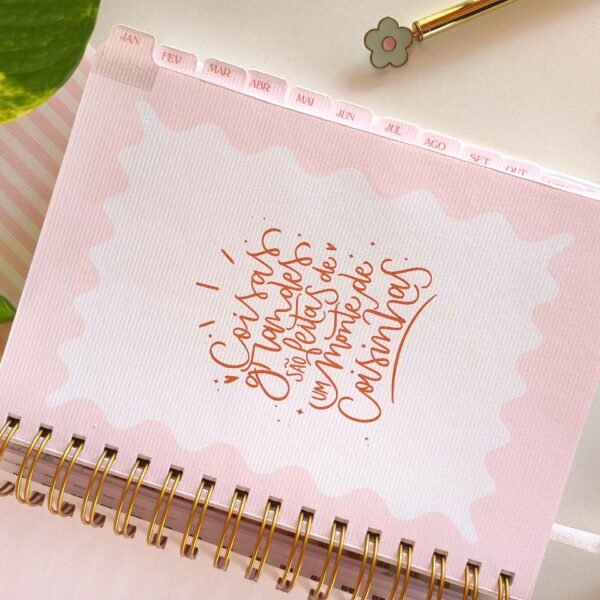 JAN
FEV
MAR
ABR
MAI
JUN
JUL
AGO
SET
OUT
Coisas
grandes
são feitas de
um monte de
coisinhas